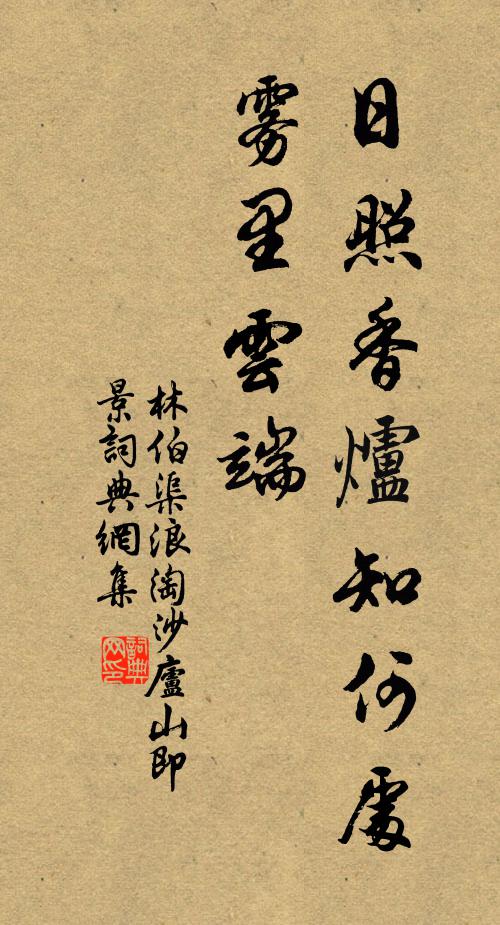 日照香爐知何處
雾里雲端
林伯渠浪淘沙廬山即
景詞典網集
詞典
网印